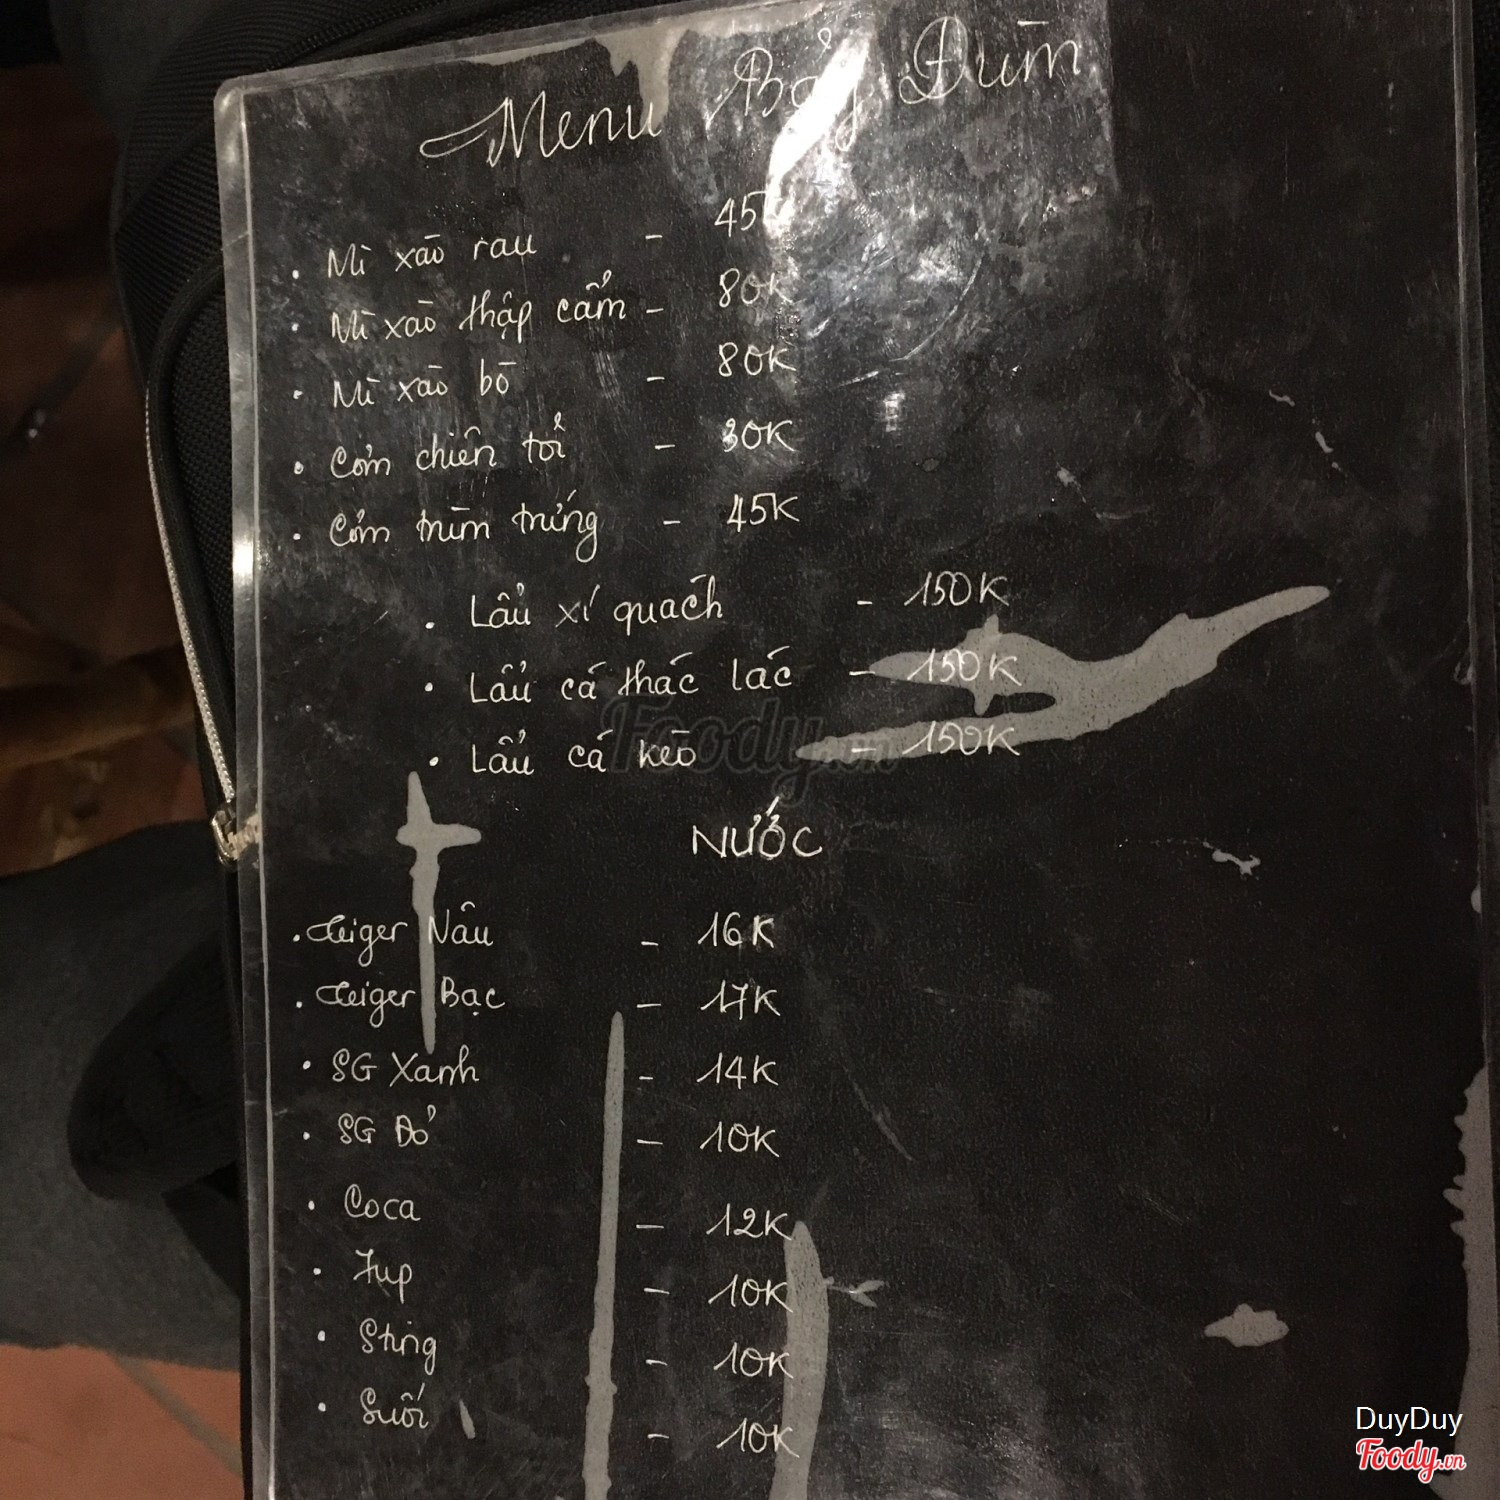 Menu Bảy Đùm
. Mì xào rau - 45
. Mì xào thập cẩm - 80K
. Mì xào bò - 80K
. Cơm chiên tỏi - 30K
. Cơm trùm trứng - 45K
. Lẩu xí quách - 150K
. Lẩu cá thác lác - 150K
. Lẩu cá kèo - 150K
NƯỚC
. Teiger Nâu - 16K
. Teiger Bạc - 17K
. SG Xanh - 14K
. SG Đỏ - 10K
. Coca - 12K
. 7up - 10K
. Sting - 10K
. Suối - 10K
Foody.vn
DuyDuy
Foody.vn